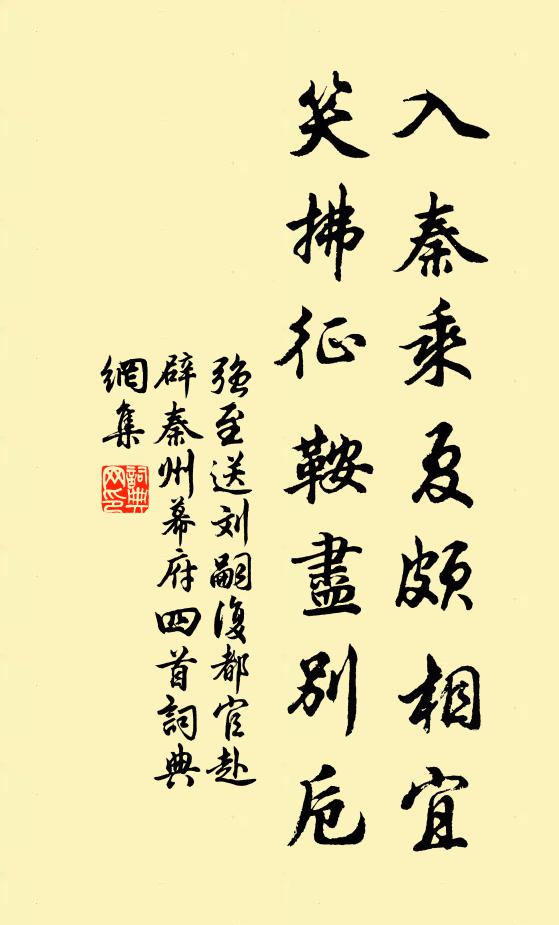 入秦乘夏頗相宜
笑拂征鞍盡別卮
强至送刘嗣復都官赴
辟秦州幕府四首詞典
網集
詞典網印